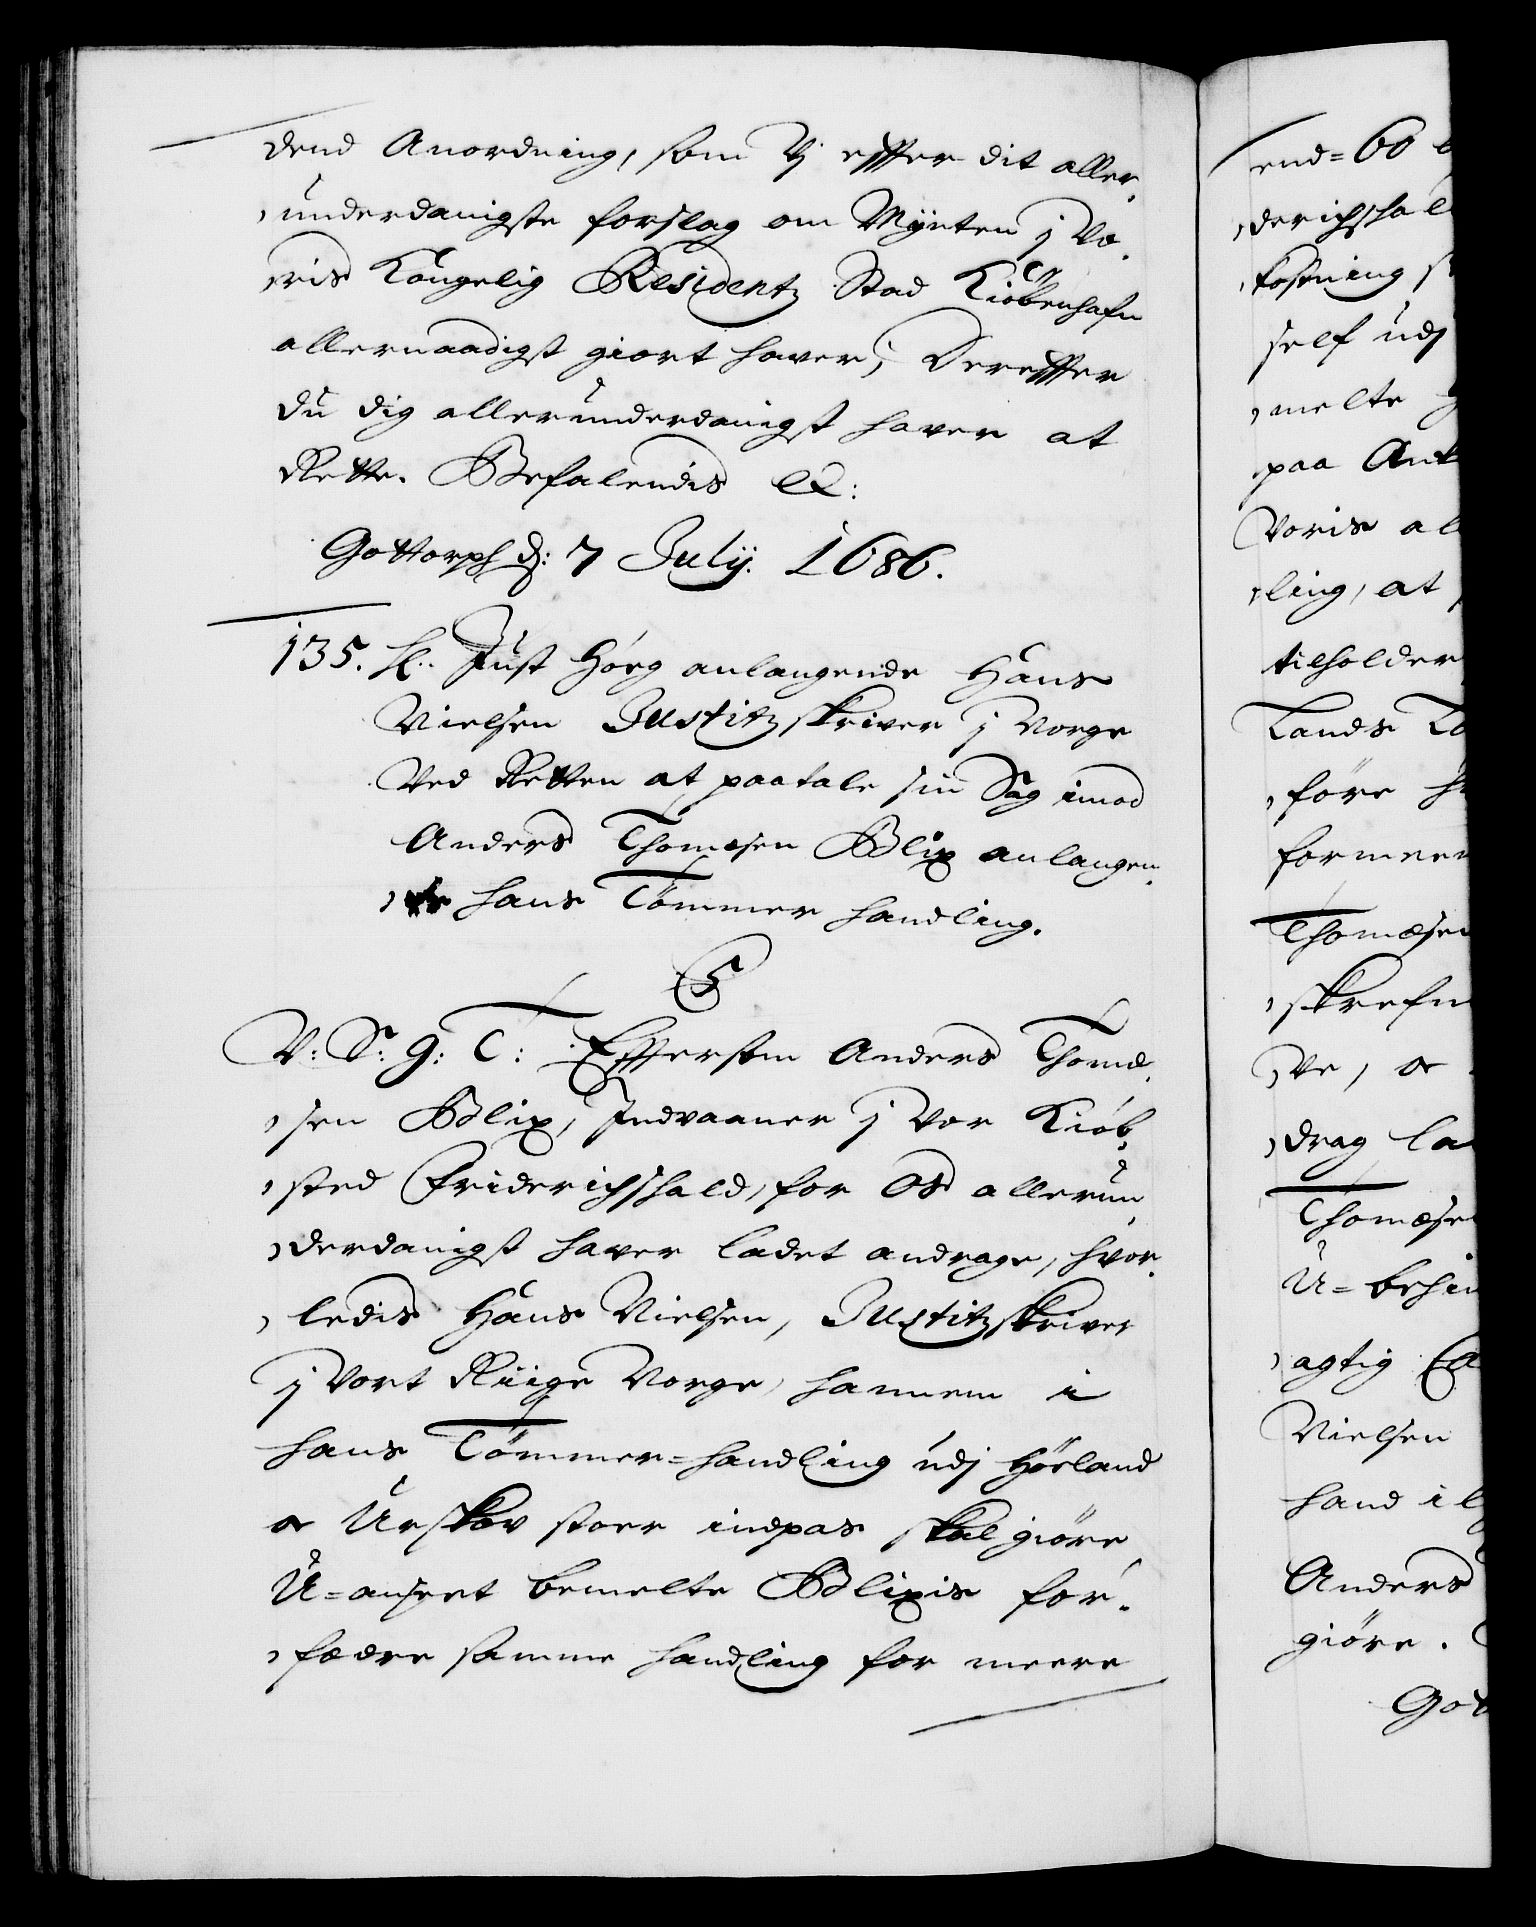 dend Anordning, som Vj effter dit aller,
,underdanigste forslag om Mÿnten j Vo,
,ris Kongelig Residentz Stad Kiöbenhafn
allernaadigst giort hafver, Dereffter
du dig allerunderdanigst hafver at
Rette. Befalendis &:
Gottorph d: 7 Julij. 1686.
135. Just Høeg anlangende Hans
Nielsen Justitzskriver j Norge
Ved Retten at paatale sin Sag imod
Anders Thomesen Blix anlangen,
,de hans Tömmer handling.
C5
V: S: G: T: Effterson Anders Thomæ,
,sen Blix, Indvaaner j Vor Kiöb,
,sted Friderichshald, for Os allerun,
,derdanigst hafver ladet andrage, hvor,
,ledis Hans Nielsen, Justitzskriver
j Vort Riige Norge, hannem i
hans Tömmer=handling udj Höeland
oc Urskov stoer indpas skal giöre,
U=anseet bemelte Blixis for,
,fædre samme handling for meere
end=60
,derichshal
self udj
,melte
paa
Voris al
,ling, at
tilholder
Lands
,före
formeen
Thomæsen
,skrefn
,ve, oc
,drag la
Thomæse
U=behin
,agtig
Nielsen
hand i
Anders
giöre.
Got